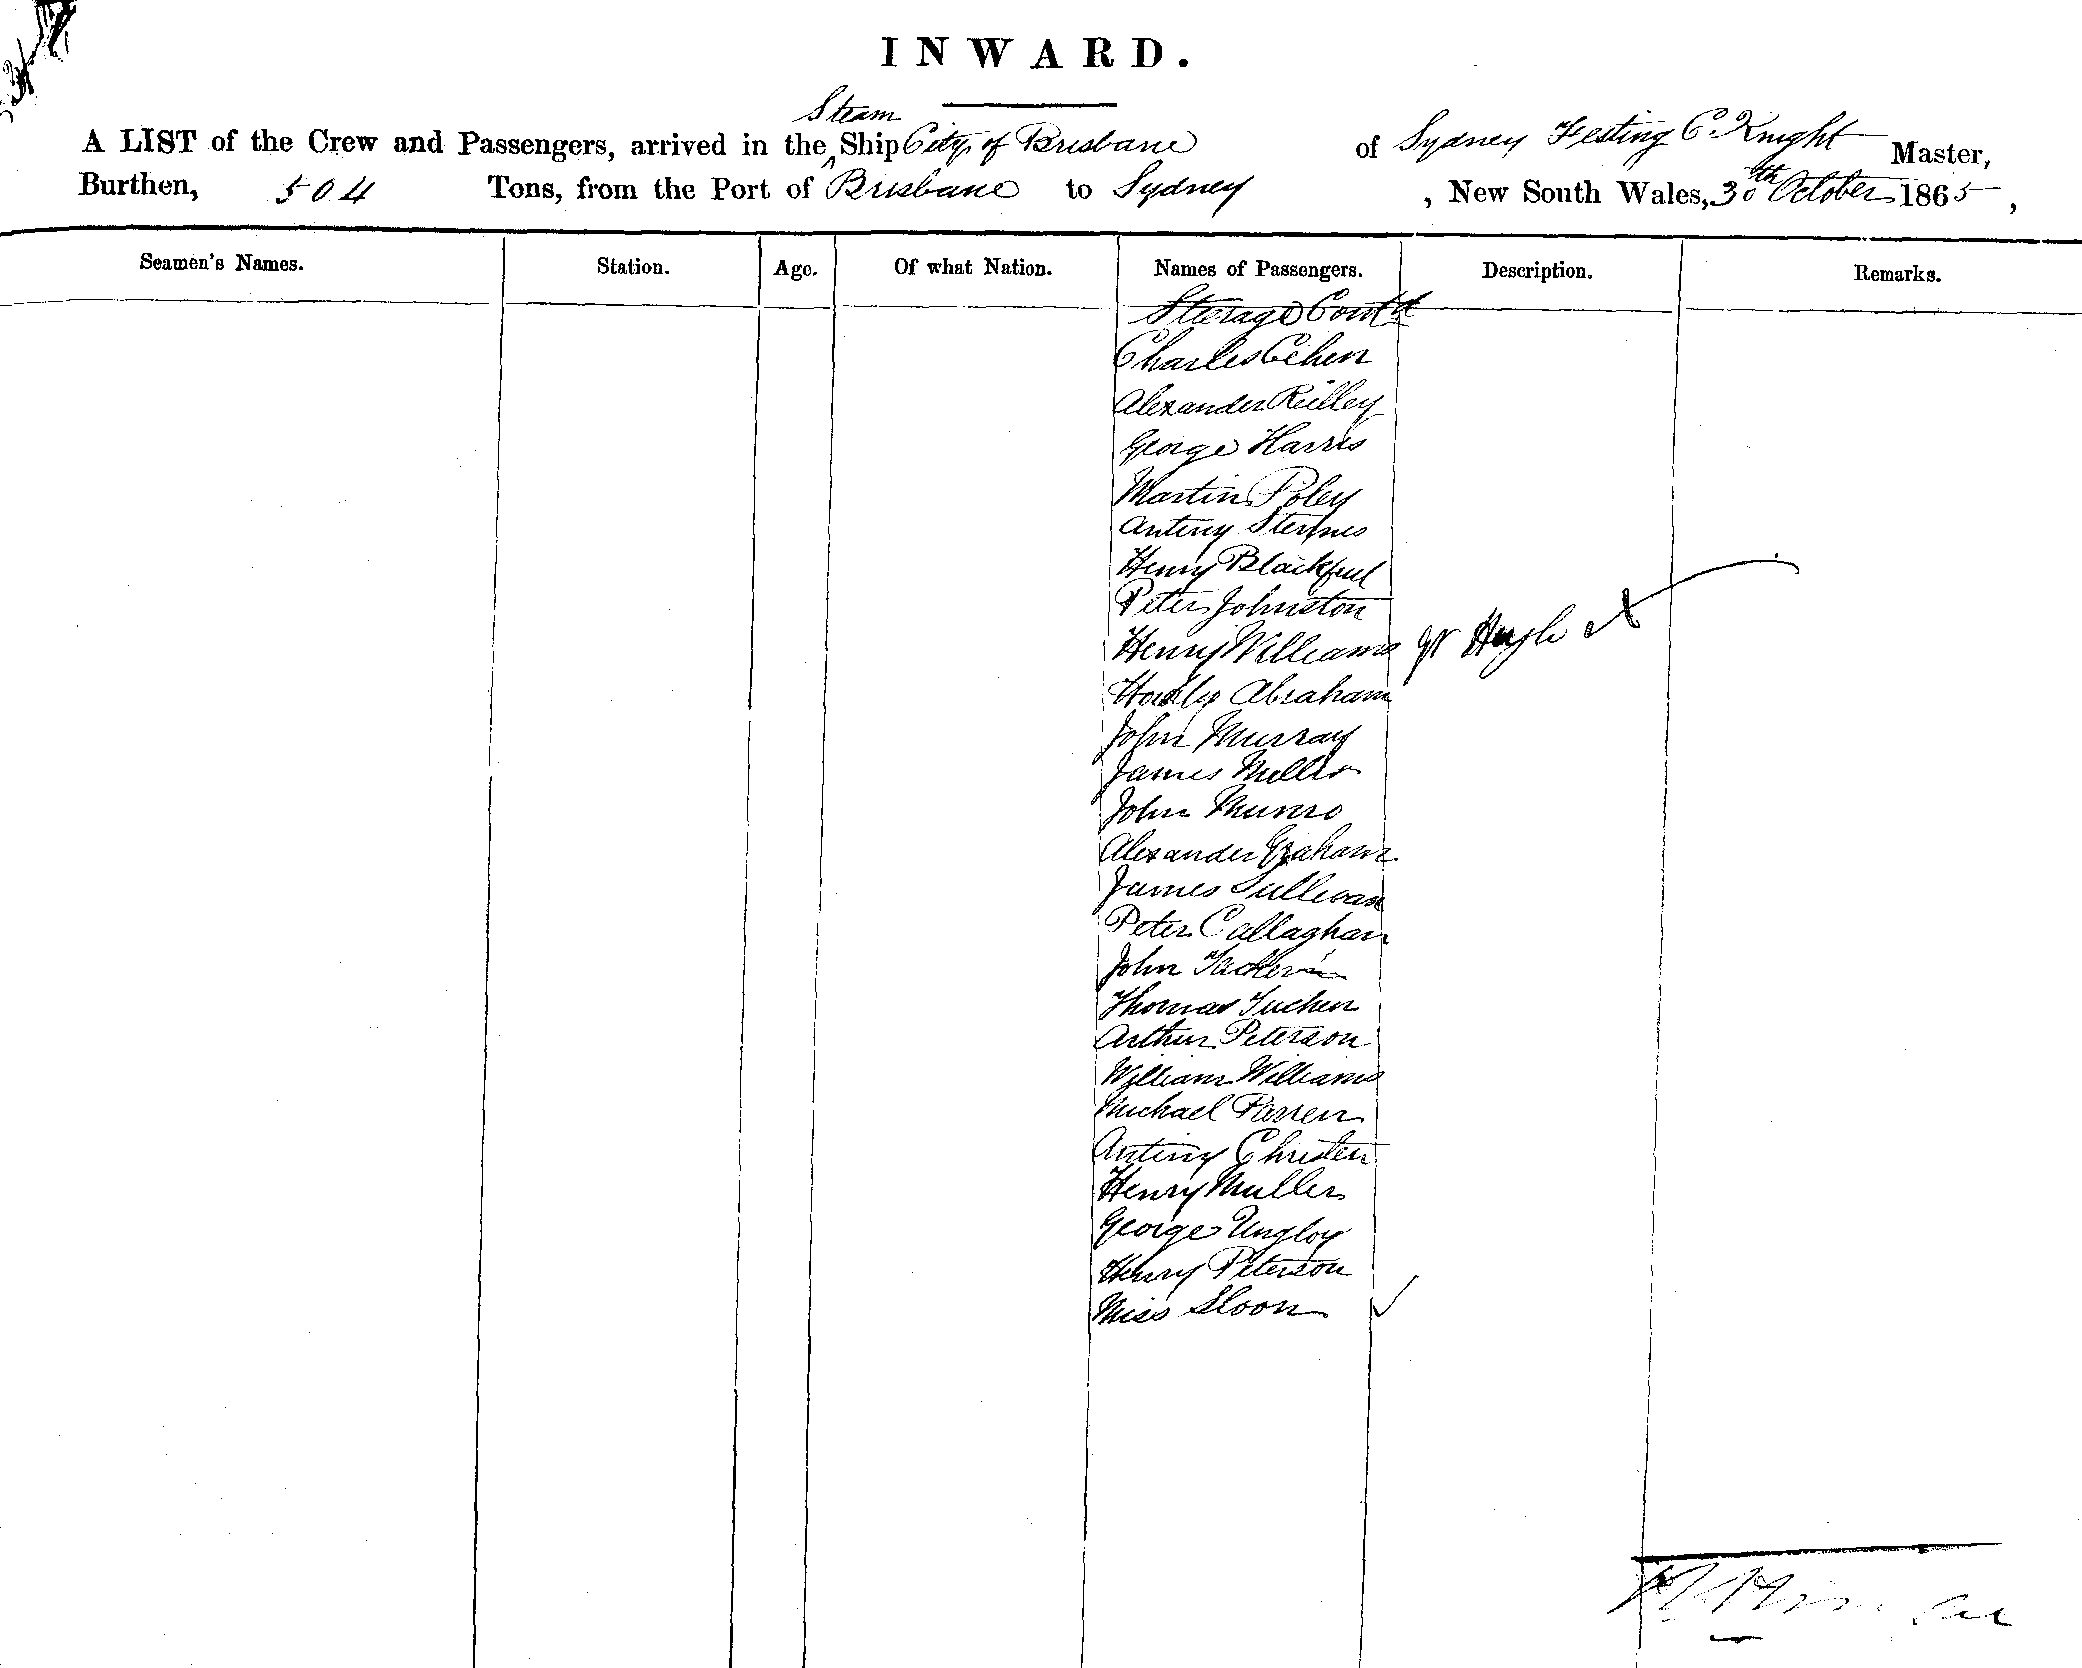 INWARD.
Steam
A LIST of the Crew and Passengers, arrived in the Ship City of Brisbane of Sydney Festing C. Knight Master,
Burthen, 504 Tons, from the Port of Brisbane to Sydney , New South Wales, 30th October 1865,
Seamen's Names. Station. Age. Of what Nation. Names of Passengers. Description. Remarks.
Steerage Contd
Charles Cehen
Alexander Reilley
George Harris
Martin Poley
Antiny
Henry
Peter Johnston
Henry Williams
Abraham
John Murray
James Miller
John Munro
Alexander Graham
James Sullivan
Peter Callaghan
John
Thomas Tucker
Arthur Peterson
William Williams
Michael Parren
Antiny Christen
Henry Muller
George Ungloy
Henry Peterson
Miss Sloon